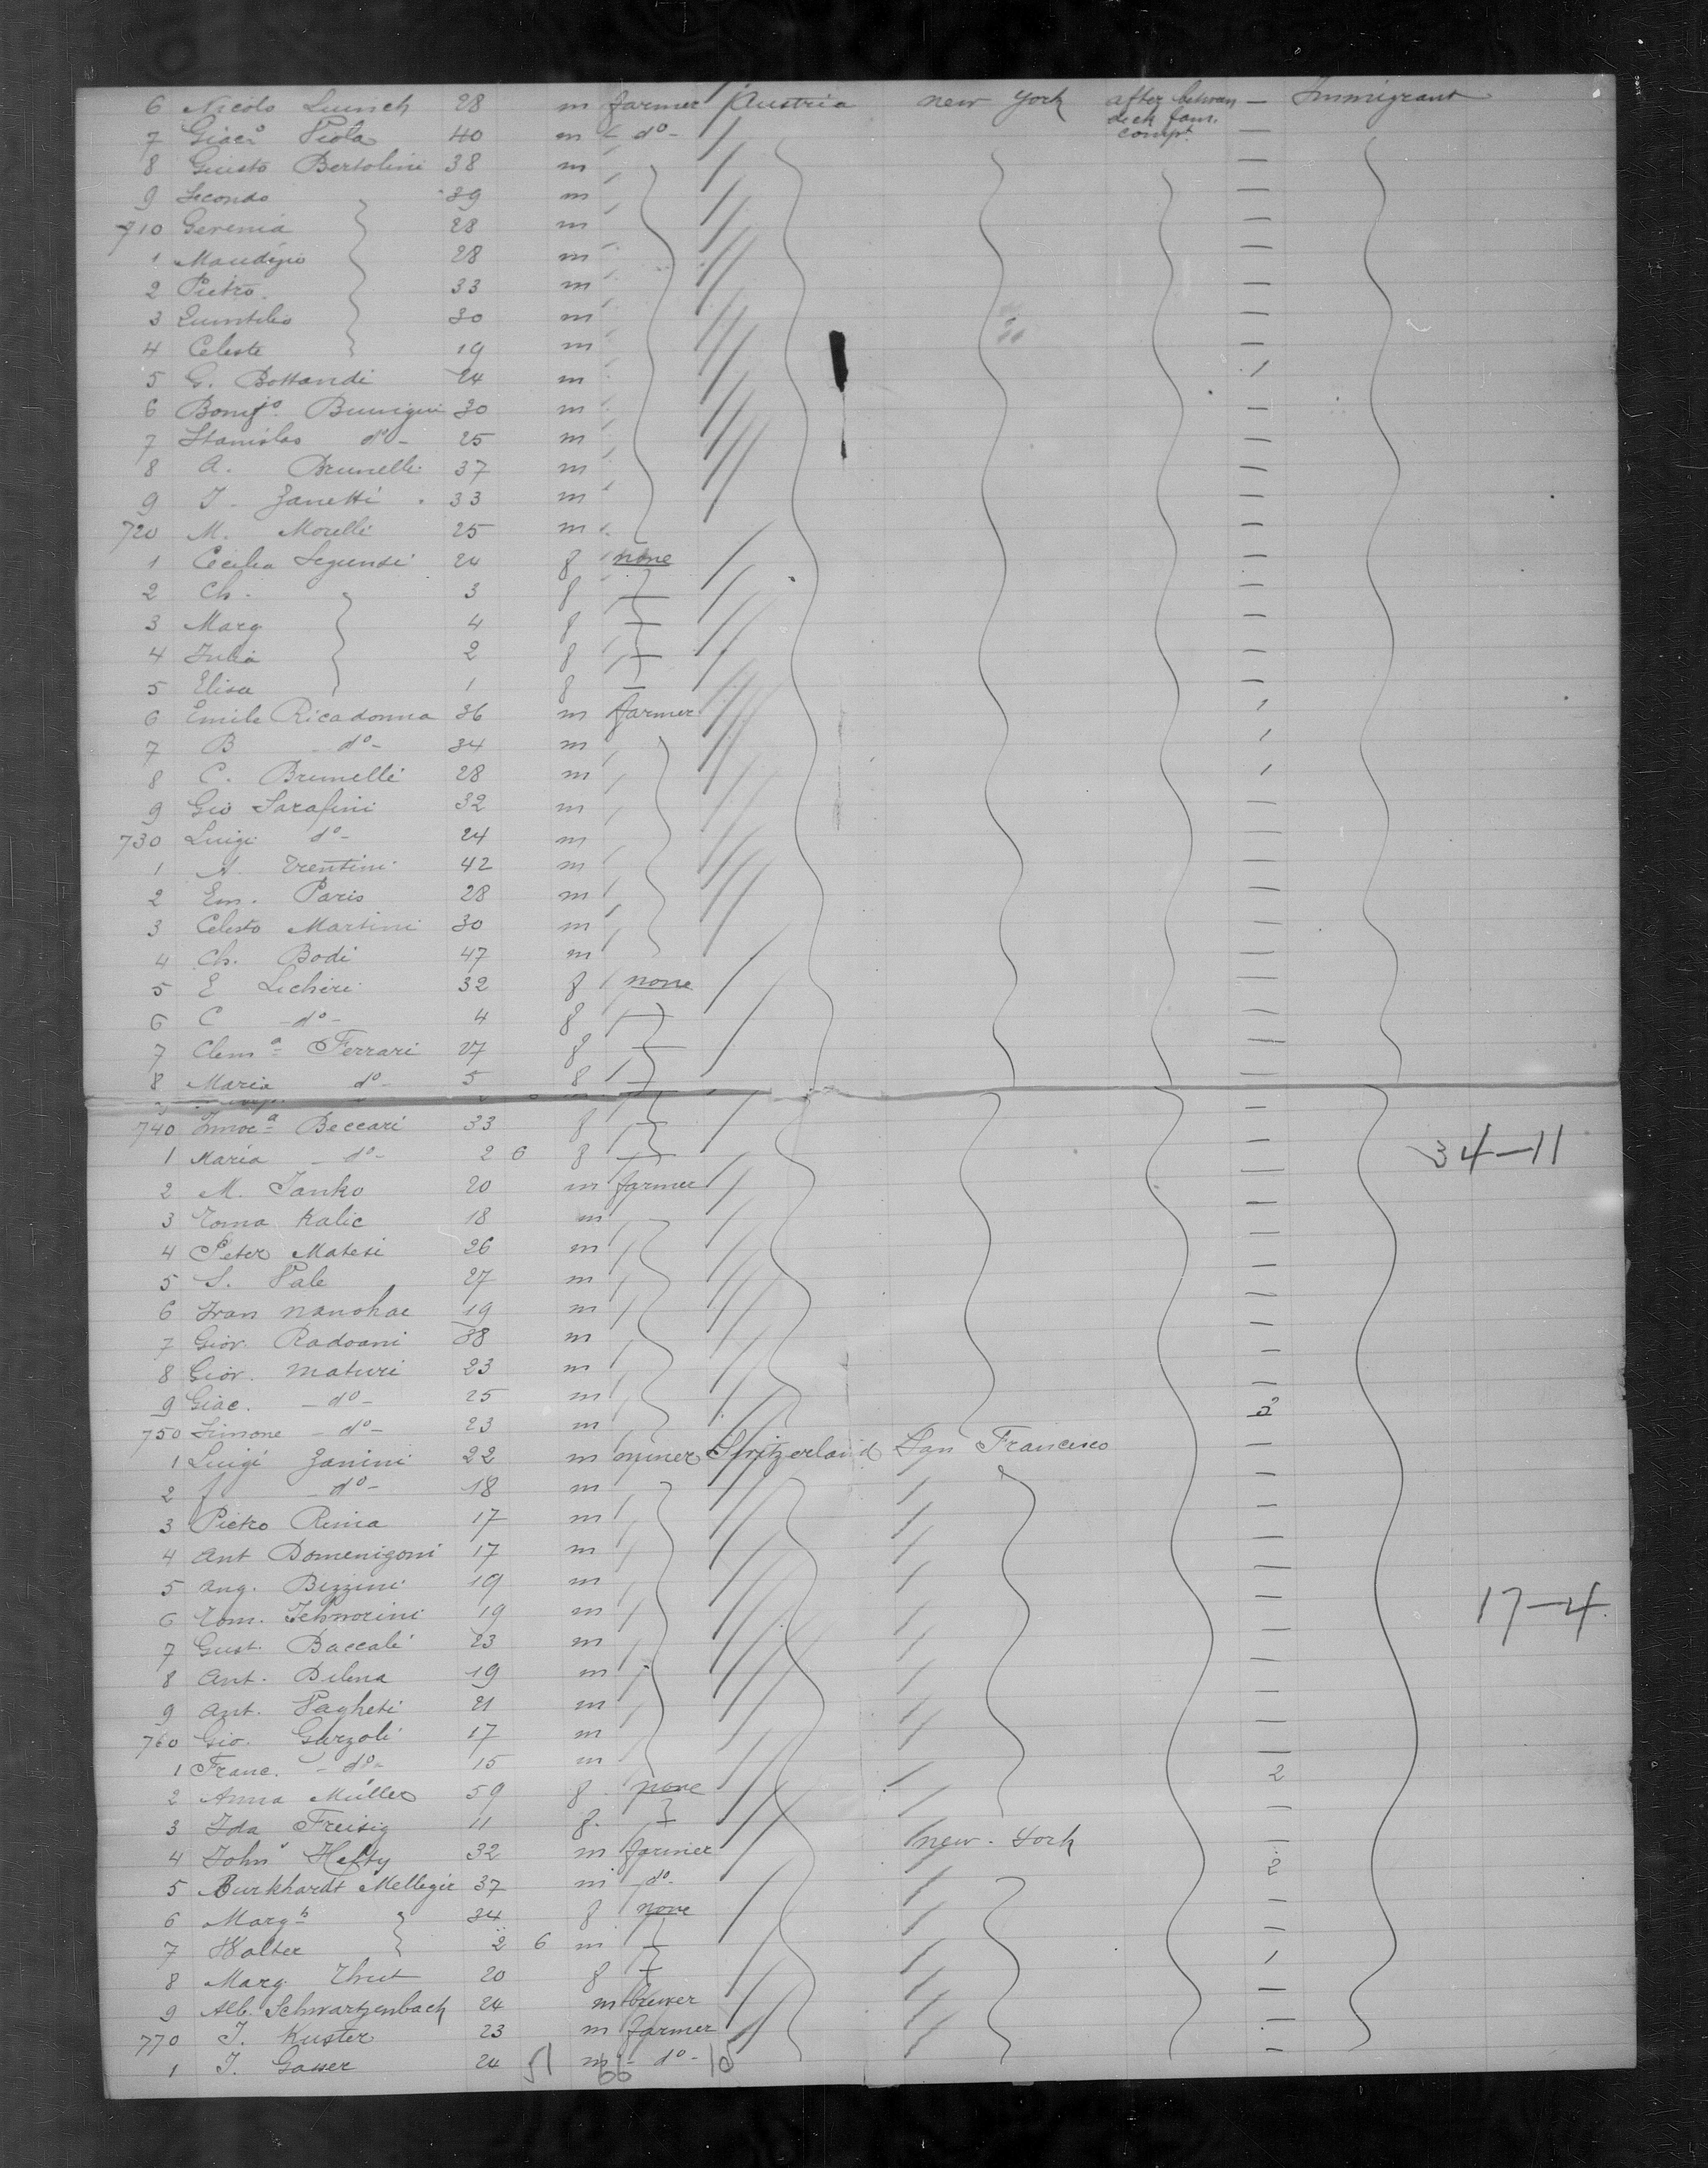 6 Nicolo Luinch 28 m farmer Austria new York after betwan — Immigrant
deck fam.
7 Giac° Viola 40 m - d° - compt. —
8 Giusto Bertolini 38 m —
9 Secondo 39 m —
710 Geremia 28 m —
1 28 m —
2 Pietro 33 m —
3 Quintilio 30 m —
4 Celeste 19 m —
5 G. Bottandi 24 m 1
6 30 m —
7 Stanislas d° - 25 m —
8 A. Brunelli 37 m —
9 J. Zanetti 33 m —
720 M. Morelli 25 m —
1 Cecilia 24 f none —
2 Ch. 3 f — —
3 Marg 4 f — —
4 Julia 2 f — —
5 Elisa 1 f — —
6 Emile Ricadonna 36 m farmer 1
7 B - d° - 34 m 1
8 C. Brunelli 28 m 1
9 Gio Sarafini 32 m —
730 Luigi d° - 24 m —
1 A. Trentini 42 m —
2 Em. Paris 28 m —
3 Celesto Martini 30 m —
4 Ch. Bodi 47 m —
5 E Lechiri 32 f none —
6 C - d° - 4 f — —
7 Clem a Ferrari 27 f — —
8 Maria d° - 5 f — —
740 Innoc a Beccari 33 f — —
1 Maria - d° - 2 6 f — — 34-11
2 M. Janko 20 m farmer —
3 Toma Kalic 18 m —
4 Peter Matesi 26 m —
5 S. Pale 27 m —
6 Ivan 19 m —
7 Giov. Radoani 38 m —
8 Giov. Maturi 23 m —
9 Giac. - d° - 25 m —
750 Simone - d° - 23 m 2
1 Luigi Zanini 22 m miner Switzerland San Francisco —
2 - d° - 18 m —
3 Pietro Rima 17 m —
4 Ant Domenigoni 17 m —
5 Aug. Bizzini 19 m —
6 Tom. 19 m — 17-4.
7 Gust. Baccali 23 m —
8 Ant. Dilena 19 m —
9 Ant. 21 m —
760 Gio. Garzoli 17 m —
1 Franc. - d° - 15 m —
2 Anna Müller 59 f none 2
3 Ida Freisig 11 f — —
4 John Hefty 32 m farmer new York —
5 Burkhardt 37 m d° 2
6 Marg h 34 f none —
7 Walter 2 6 m — —
8 Marg. 20 f — 1
9 Alb. Schwartzenbach 24 m brewer —
770 J. Kuster 23 m farmer —
1 J. Gasser 24 m - d° - —
51 66 10